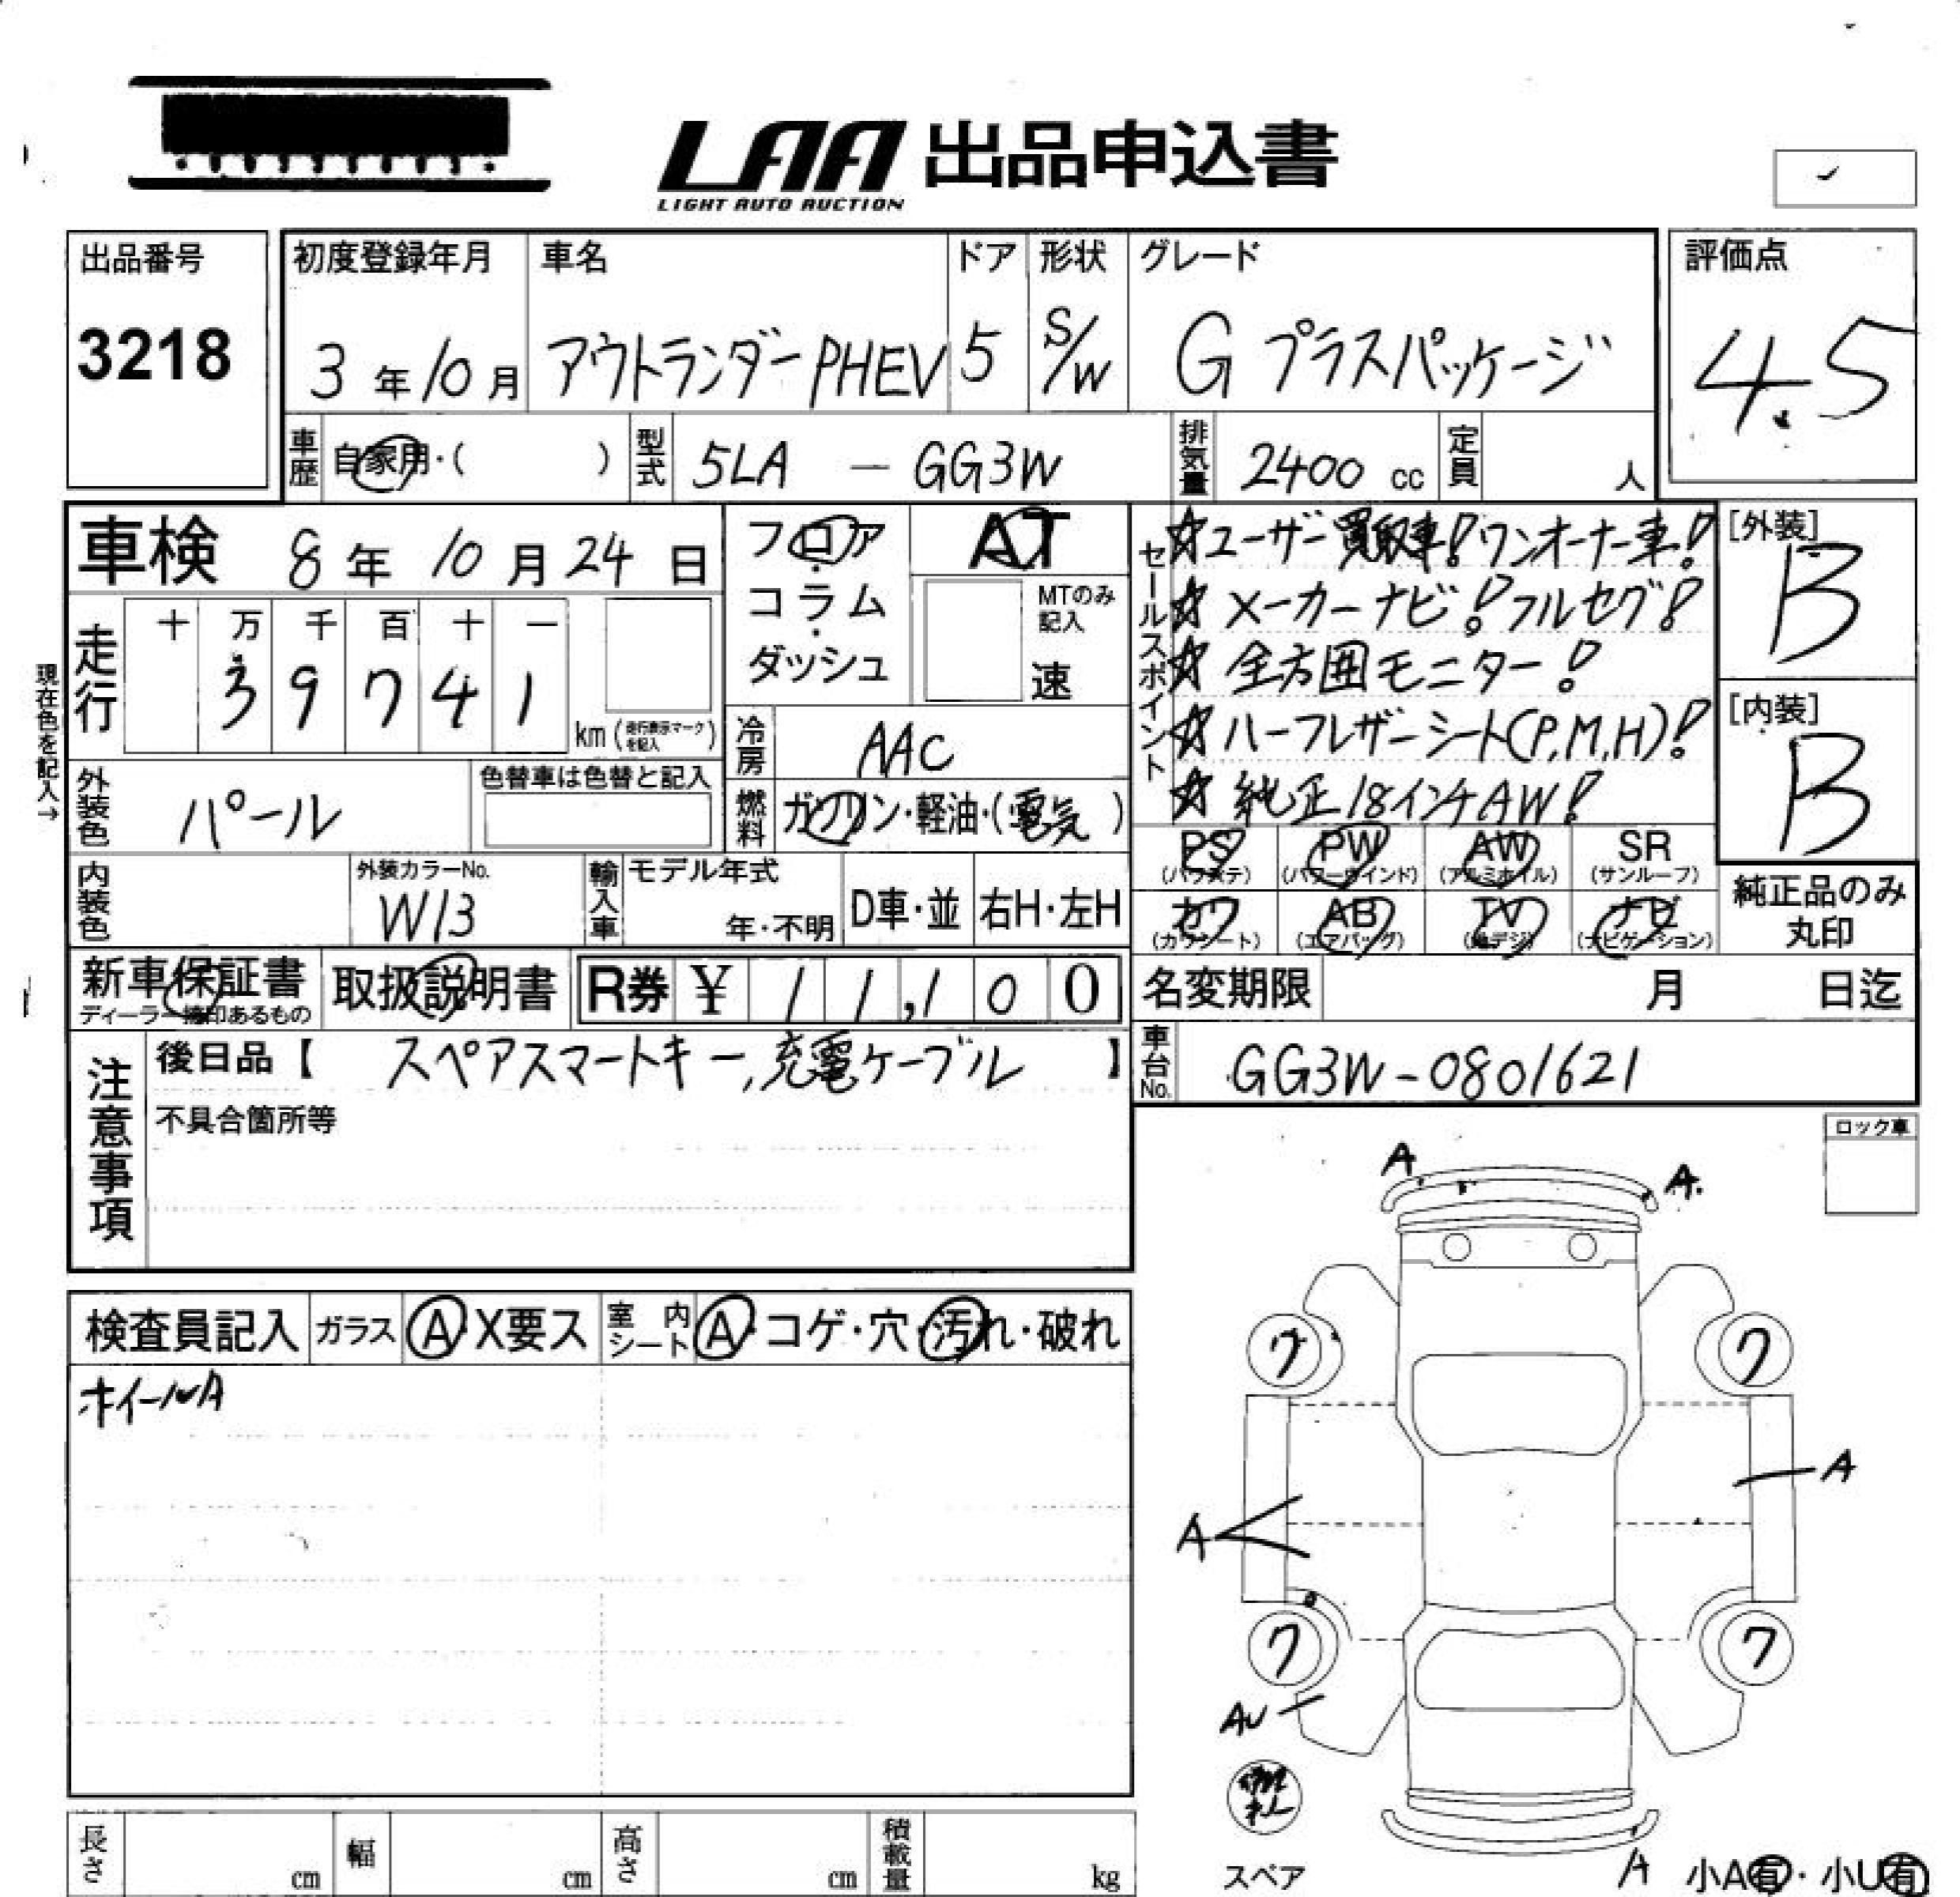 LAA 出品申込書
LIGHT AUTO AUCTION
出品番号
3218
初度登録年月
3年10月
車名
アウトランダーPHEV
ドア
5
形状
S/W
グレード
G プラスパッケージ
評価点
4.5
車歴
自家用・( )
型式
5LA - GG3W
排気量
2400 cc
定員
人
車検 8年10月24日
フロア・コラム・ダッシュ
AT
MTのみ記入
速
走行
十 万 千 百 十 一
3 9 7 4 1
km (走行表示マークを記入)
現在色を記入→
冷房
AAC
外装色
パール
色替車は色替と記入
燃料
ガソリン・軽油・(電気)
内装色
外装カラーNo.
W13
輸入車
モデル年式
年・不明
D車・並
右H・左H
セールスポイント
☆ユーザー買取車!ワンオーナー車!
☆メーカーナビ!フルセグ!
☆全方囲モニター!
☆ハーフレザーシート(P,M,H)!
☆純正18インチAW!
[外装]
B
[内装]
B
PS
(パワステ)
PW
(パワーウインド)
AW
(アルミホイル)
SR
(サンルーフ)
カワ
(カワシート)
AB
(エアバッグ)
TV
(地デジ)
ナビ
(ナビゲーション)
純正品のみ
丸印
新車保証書
ディーラー捺印あるもの
取扱説明書
R券 ¥ 11,100
名変期限 月 日迄
車台No.
GG3W-0801621
注意事項
後日品【 スペアスマートキー,充電ケーブル 】
不具合箇所等
ロック車
検査員記入
ガラス
A・X要ス
室内シート
A・コゲ・穴・汚れ・破れ
ホイールA
A
A.
7
7
A
A
7
7
AU
A
スペア
小A有・小U有
長さ
cm
幅
cm
高さ
cm
積載量
kg